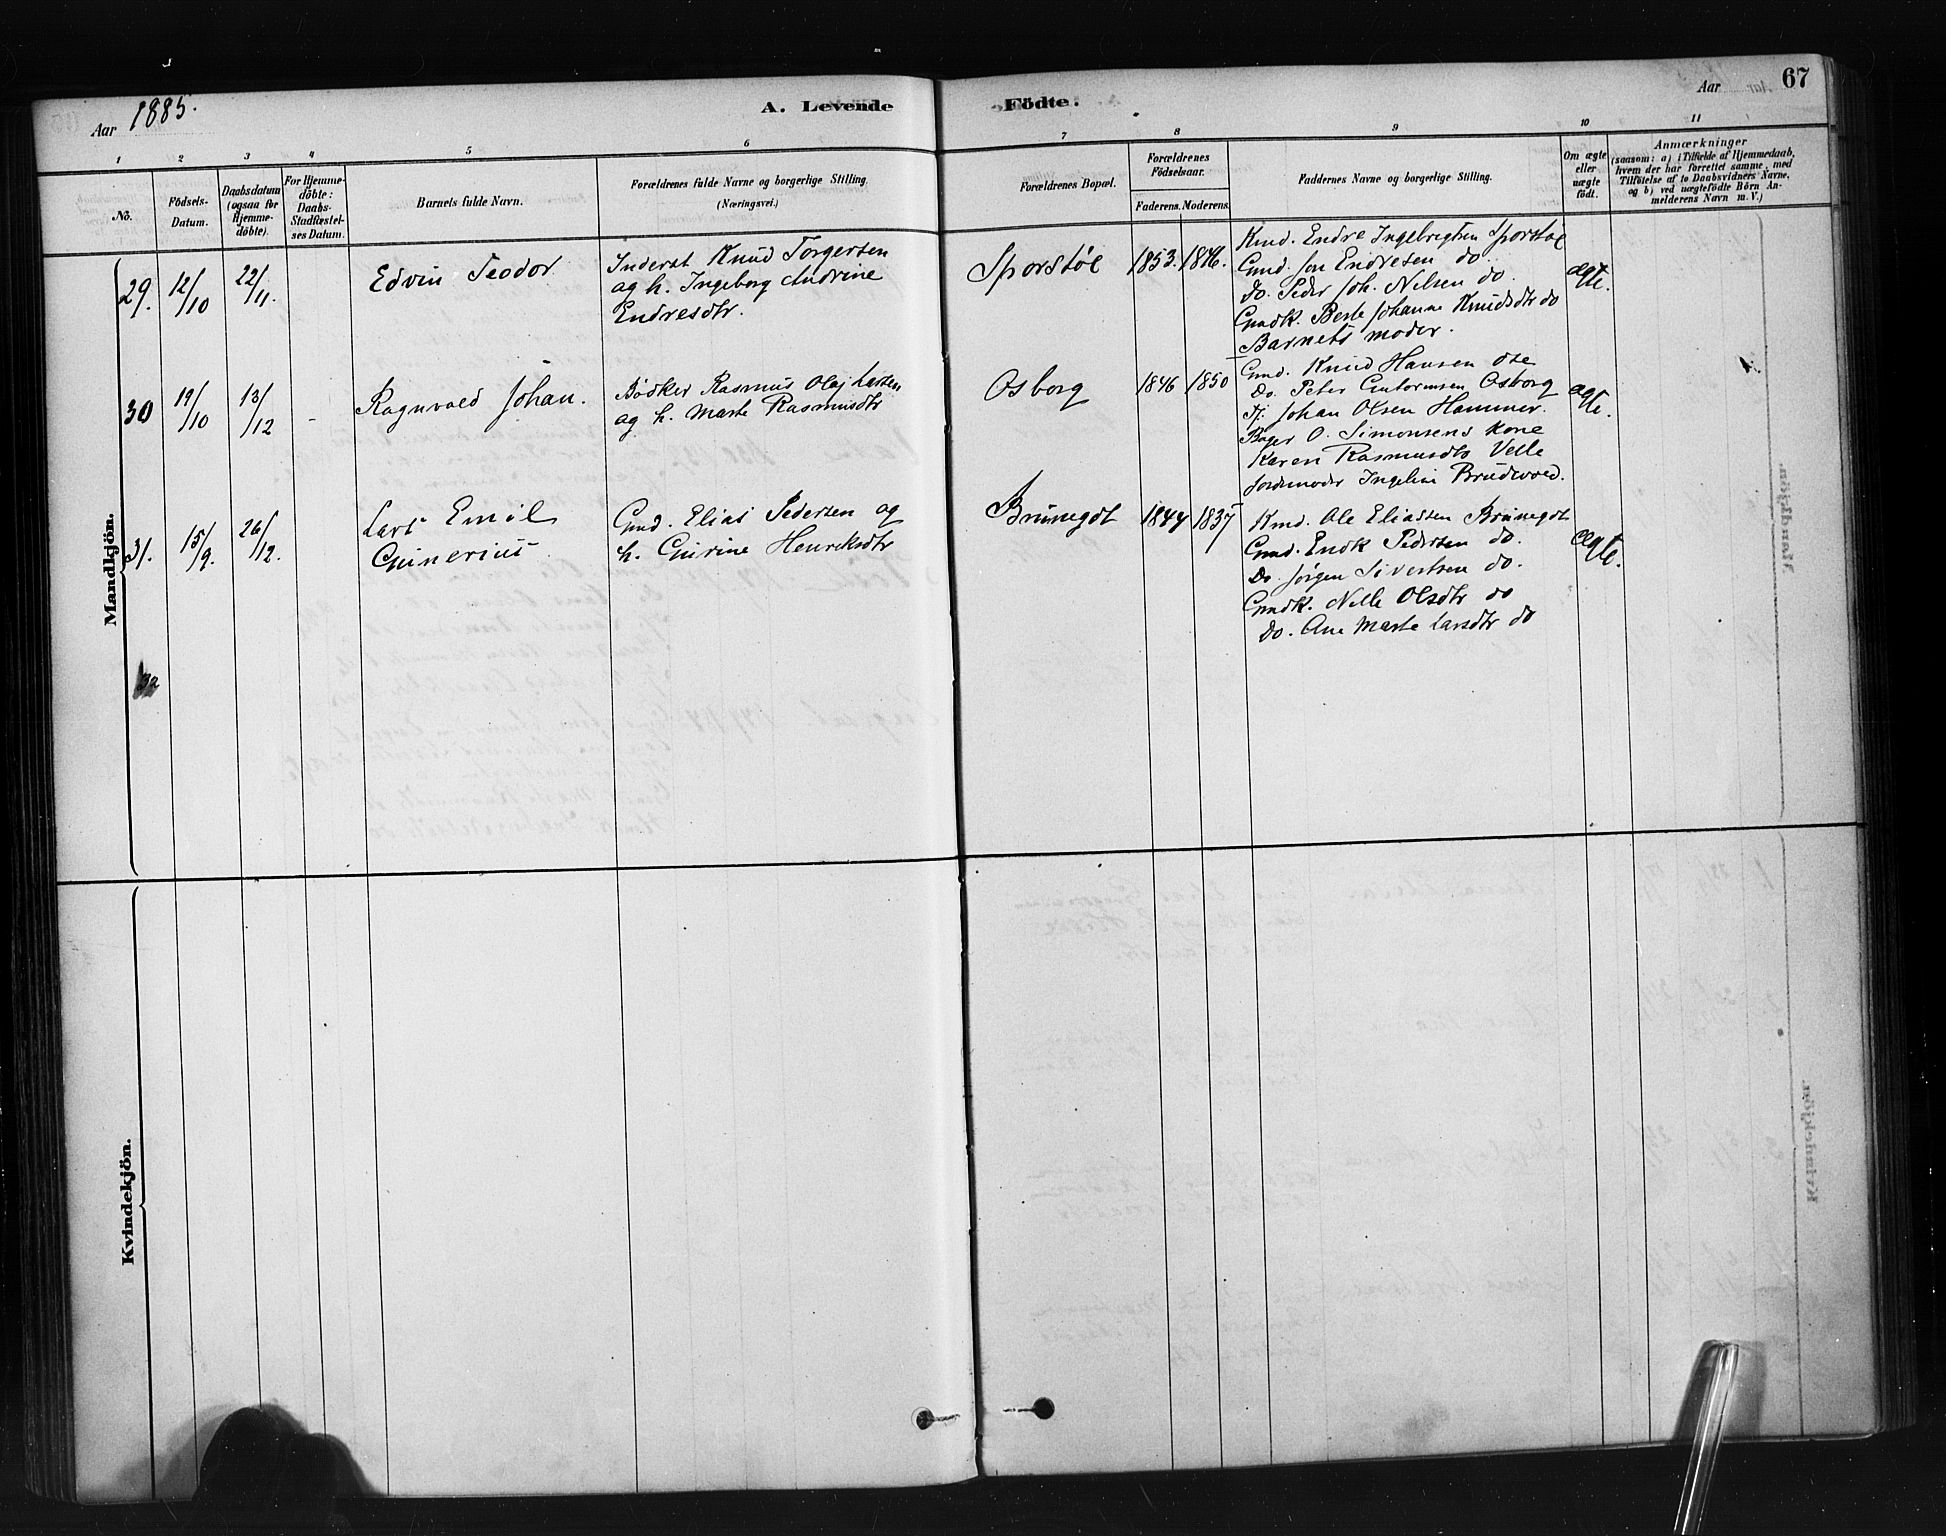 Aar 1885.
A. Levende Födte.
Aar 67
1 2 3 4 5 6 7 8 9 10 11
No.
Födsels-Datum.
Daabsdatum (ogsaa for Hjemme-döbte).
For Hjemme-döbte: Daabs-Stadfæstel-ses Datum.
Barnets fulde Navn.
Forældrenes fulde Navne og borgerlige Stilling. (Næringsvei.)
Forældrenes Bopæl.
Forældrenes Födselsaar.
Faderens. Moderens.
Faddernes Navne og borgerlige Stilling.
Om ægte eller uægte födt.
Anmærkninger
(saasom: a) i Tilfælde af Hjemmedaab,
hvem der har forrettet samme, med
Tilföielse af to Daabsvidners Navne,
og b) ved uægtefödte Börn An-
melderens Navn m. V.)
Mandkjön.
29. 12/10 22/11.
Edvin Teodor
Inderst Knud Torgersen
og h. Ingeborg Andrine
Endresdtr.
Sporstöl
1853. 1846.
Kmd. Endre Ingebrigtsen Sporstöl
Gmd. Jon Endresen do
do. Peder Joh. Nilsen do
Gmdk. Berte Johanne Knudsdtr do
Barnets moder.
ægte.
30 19/10 13/12 -
Ragnvald Johan.
Bödker Rasmus Olaj Larsen
og h. Marte Rasmusdtr
Osborg
1846 1850
Gmd. Knud Hansen
Do. Peter Gutormsen Osborg
Tj. Johan Olsen Hammer.
Bager O. Simonsens Kone
Karen Rasmusdtr Velle
Jordmoder Ingeline Brudevold.
ægte.
31. 15/9. 26/12.
Lars Emil
Gunerius
Gmd. Elias Pedersen og
h. Gurine Henriksdtr
Brunegot
1844 1837
Kmd. Ole Eliassen Brunegot
Gmd. Endk Pedersen do.
Do. Jörgen Sivertsen do.
Gmdk. Nille Olsdtr do
Do. Ane Marte Larsdtr do
ægte.
32
Kvindekjön.